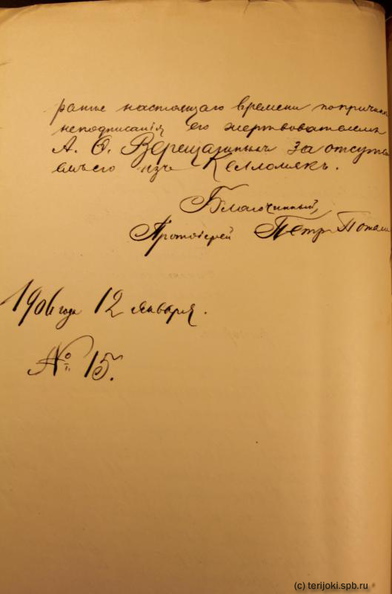 ранее настоящаго времени по причин
неподписанія его жертвователемъ
А. Ѳ. Верещагинымъ за отсутс
емъ его изъ Келломякъ.
Благочинный,
Протоіерей Петръ Поташ
1906 года 12 января.
№ 15.
(c) terijoki.spb.ru